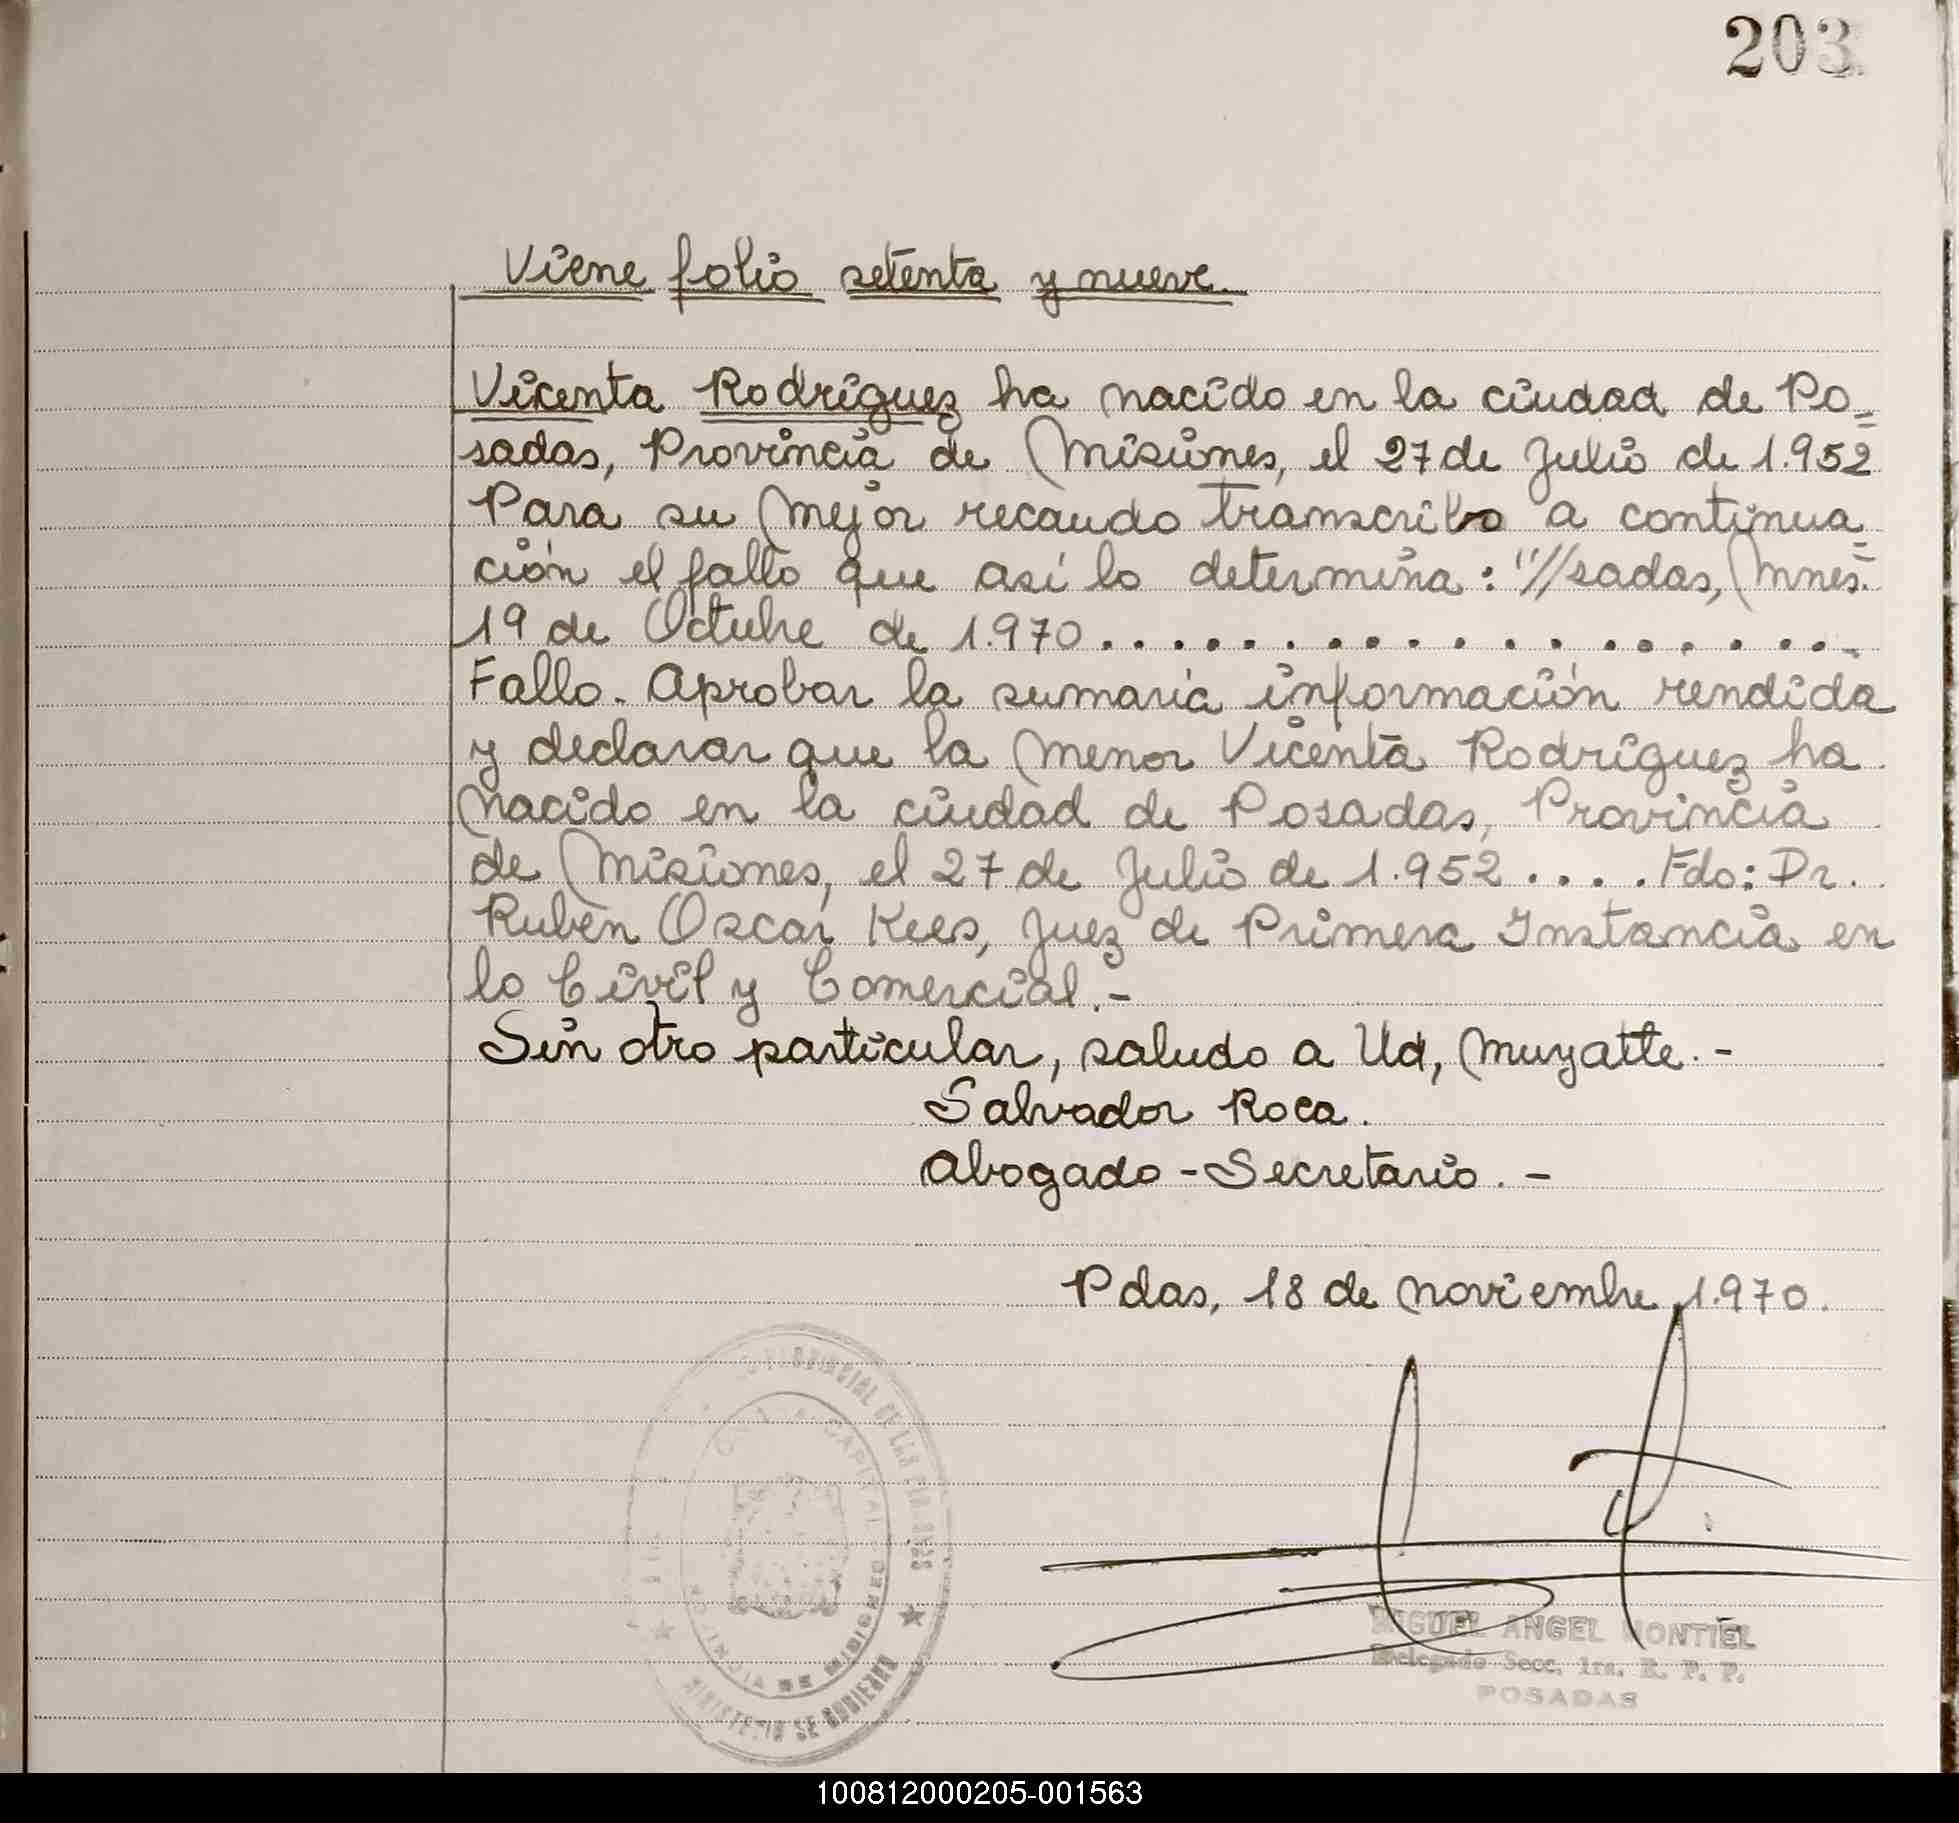 203
Viene folio setenta y nueve.
Vicenta Rodríguez ha nacido en la ciudad de Po=
sadas, Provincia de Misiones, el 27 de Julio de 1.952
Para su mejor recaudo transcribo a continua=
ción el fallo que así lo determina: "//sadas, Mnes.
19 de Octubre de 1.970....................
Fallo. Aprobar la sumaria información rendida
y declarar que la menor Vicenta Rodríguez ha
nacido en la ciudad de Posadas, Provincia
de Misiones, el 27 de Julio de 1.952.... Fdo: Dr.
Rubén Oscar Kees, Juez de Primera Instancia en
lo Civil y Comercial.-
Sin otro particular, saludo a Ud, muy atte.-
Salvador Roca.
Abogado-Secretario.-
Pdas, 18 de noviembre 1.970.
PROVINCIAL DE LAS PERSONAS
MINISTERIO DE GOBIERNO
CAPITAL
PROVINCIA DE MISIONES
MIGUEL ANGEL MONTIEL
Delegado Secc. 1ra. R. P. P.
POSADAS
100812000205-001563